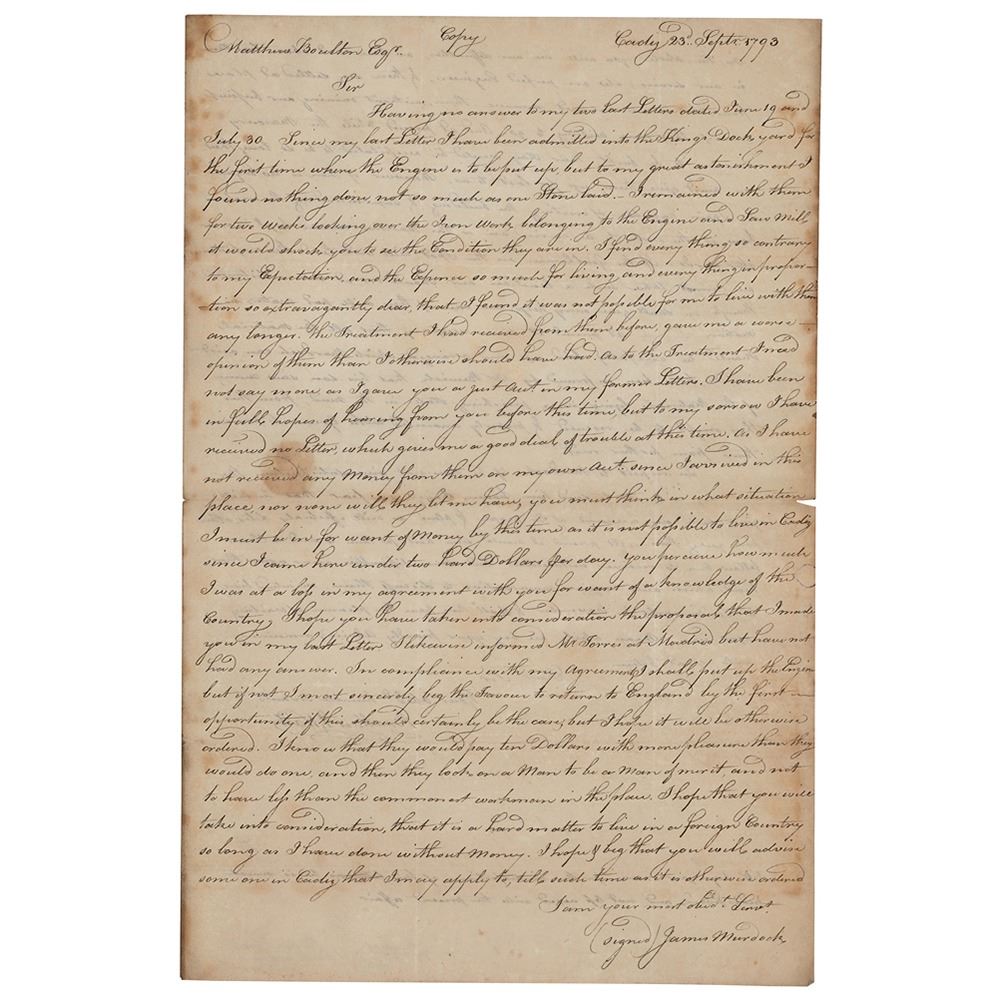 Copy
Cadiz 23d. Septr. 1793
Matthew Boulton Esqr.
Sir
Having no answer to my two last Letters dated June 19 and
July 30 Since my last Letter I have been admitted into the Kings Dock yard for
the first time where the Engine is to be put up, but to my great astonishment I
found nothing done, not so much as one Stone laid. I remained with them
for two Weeks looking over the Iron Work belonging to the Engine and Saw Mill
it would shock you to see the Condition they are in. I find every thing so contrary
to my Expectation, and the Expence so much for living, and every thing in propor-
-tion so extravagantly dear, that I found it was not possible for me to live with them
any longer. the Treatment I had received from them before, gave me a worse
opinion of them than I otherwise should have had. As to the Treatment I need
not say more as I gave you a just Acct. in my former Letters. I have been
in full hopes of hearing from you before this time, but to my sorrow I have
received no Letter, which gives me a good deal of trouble at this time. As I have
not received any Money from them on my own Acct. since I arrived in this
place nor none will they let me have, you must think in what situation
I must be in for want of Money by this time as it is not possible to live in Cadiz
since I came here under two hard Dollars per day. you perceive how much
I was at a loss in my agreement with you for want of a knowledge of the
Country, I hope you have taken into consideration the proposals that I made
you in my last Letter I likewise informed Mr. Torres at Madrid but have not
had any answer. In compliance with my Agreement, I shall put up the Engine
but if not I most sincerely beg the Favour to return to England by the first
opportunity if this should certainly be the case, but I hope it will be otherwise
ordered. I know that they would pay ten Dollars with more pleasure than they
would do one, and then they look on a Man to be a Man of merit, and not
to have less than the commonest workman in the place. I hope that you will
take into consideration, that it is a hard matter to live in a foreign Country
so long as I have done without Money. I hope & beg that you will advise
some one in Cadiz that I may apply to, till such time as it is otherwise ordered
I am your most obedt. Servt.
(signed) James Murdock